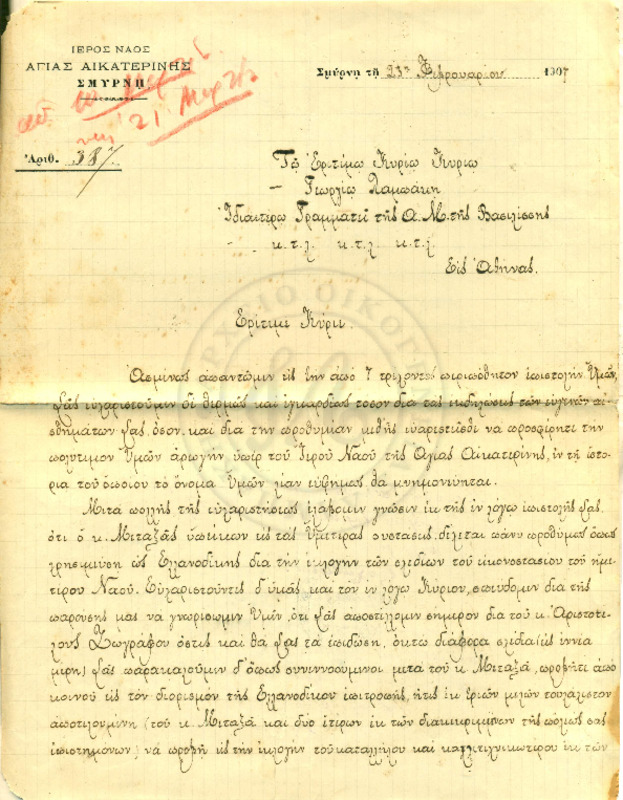 ΙΕΡΟΣ ΝΑΟΣ
ΑΓΙΑΣ ΑΙΚΑΤΕΡΙΝΗΣ
ΣΜΥΡΝΗ
Σμύρνῃ τῇ 23ῃ Φεβρουαρίου 1907
21 Μαρτ
Ἀριθ. 387
Τῷ Ἐριτίμῳ Κυρίῳ Κυρίῳ
Γεωργίῳ Λαμπάκῃ
Ἰδιαιτέρῳ Γραμματεῖ τῆς Α. Μ. τῆς Βασιλίσσης
κ.τ.λ. κ.τ.λ. κ.τ.λ.
Εἰς Ἀθήνας.
Ἐρίτιμε Κύριε.
Ἀσμένως ἀπαντῶμεν εἰς τὴν ἀπὸ 7 τρέχοντος περιπόθητον ἐπιστολὴν Ὑμῶν,
Σᾶς εὐχαριστοῦμεν δὲ θερμῶς καὶ ἐγκαρδίως τόσον διὰ τὰς ἐκδηλώσεις τῶν εὐγενῶν αἰσ-
θημάτων Σας, ὅσον καὶ διὰ τὴν προθυμίαν μεθ' ἧς εὐαρεστεῖσθε νὰ προσφέρητε τὴν
πολύτιμον Ὑμῶν ἀρωγὴν ὑπὲρ τοῦ Ἱεροῦ Ναοῦ τῆς Ἁγίας Αἰκατερίνης, ἐν τῇ ἱστο-
ρίᾳ τοῦ ὁποίου τὸ ὄνομα Ὑμῶν λίαν εὐφήμως θὰ μνημονεύηται.
Μετὰ πολλῆς τῆς εὐχαριστήσεως ἐλάβομεν γνῶσιν ἐκ τῆς ἐν λόγῳ ἐπιστολῆς Σας,
ὅτι ὁ κ. Μεταξᾶς ὑπείκων εἰς τὰς Ὑμετέρας συστάσεις, δέχεται πάνυ προθύμως ὅπως
χρησιμεύσῃ ὡς Ἑλλανοδίκης διὰ τὴν ἐκλογὴν τῶν σχεδίων τοῦ εἰκονοστασίου τοῦ ἡμε-
τέρου Ναοῦ. Εὐχαριστοῦντες δ' ὑμᾶς καὶ τὸν ἐν λόγῳ Κύριον, σπεύδομεν διὰ τῆς
παρούσης μας νὰ γνωρίσωμεν Ὑμῖν, ὅτι Σᾶς ἀποστέλλομεν σήμερον διὰ τοῦ κ. Ἀριστοτέ-
λους Ζωγράφου ὅστις καὶ θὰ Σᾶς τὰ ἐπιδώσῃ, ὀκτὼ διάφορα σχέδια (εἰς ἐννέα
μέρη) Σᾶς παρακαλοῦμεν δ' ὅπως συνεννοούμενοι μετὰ τοῦ κ. Μεταξᾶ, προβῆτε ἀπὸ
κοινοῦ εἰς τὸν διορισμὸν τῆς Ἑλλανοδίκου ἐπιτροπῆς, ἥτις ἐκ τριῶν μελῶν τοὐλάχιστον
ἀποτελουμένη (τοῦ κ. Μεταξᾶ καὶ δύο ἑτέρων ἐκ τῶν διακεκριμένων τῆς πόλεώς σας
ἐπιστημόνων) νὰ προβῇ εἰς τὴν ἐκλογὴν τοῦ καταλλήλου καὶ καλλιτεχνικωτέρου ἐκ τῶν